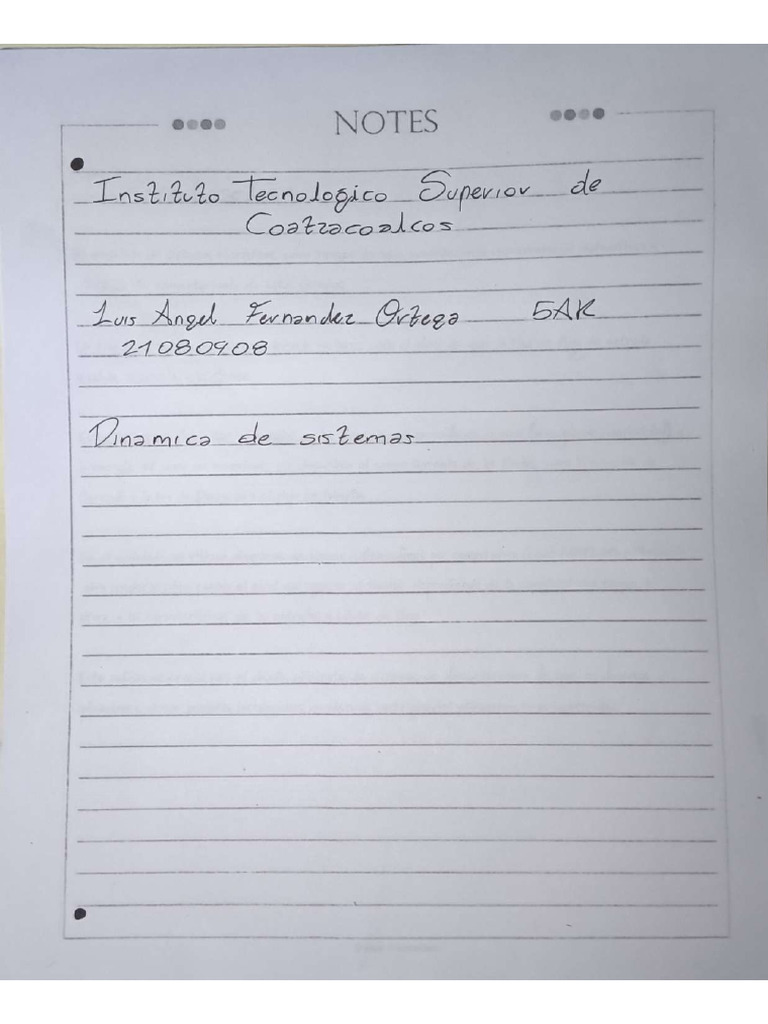 NOTES
Instituto Tecnologico Superior de
Coatzacoalcos
Luis Angel Fernandez Ortega 5AK
21080908
Dinamica de sistemas